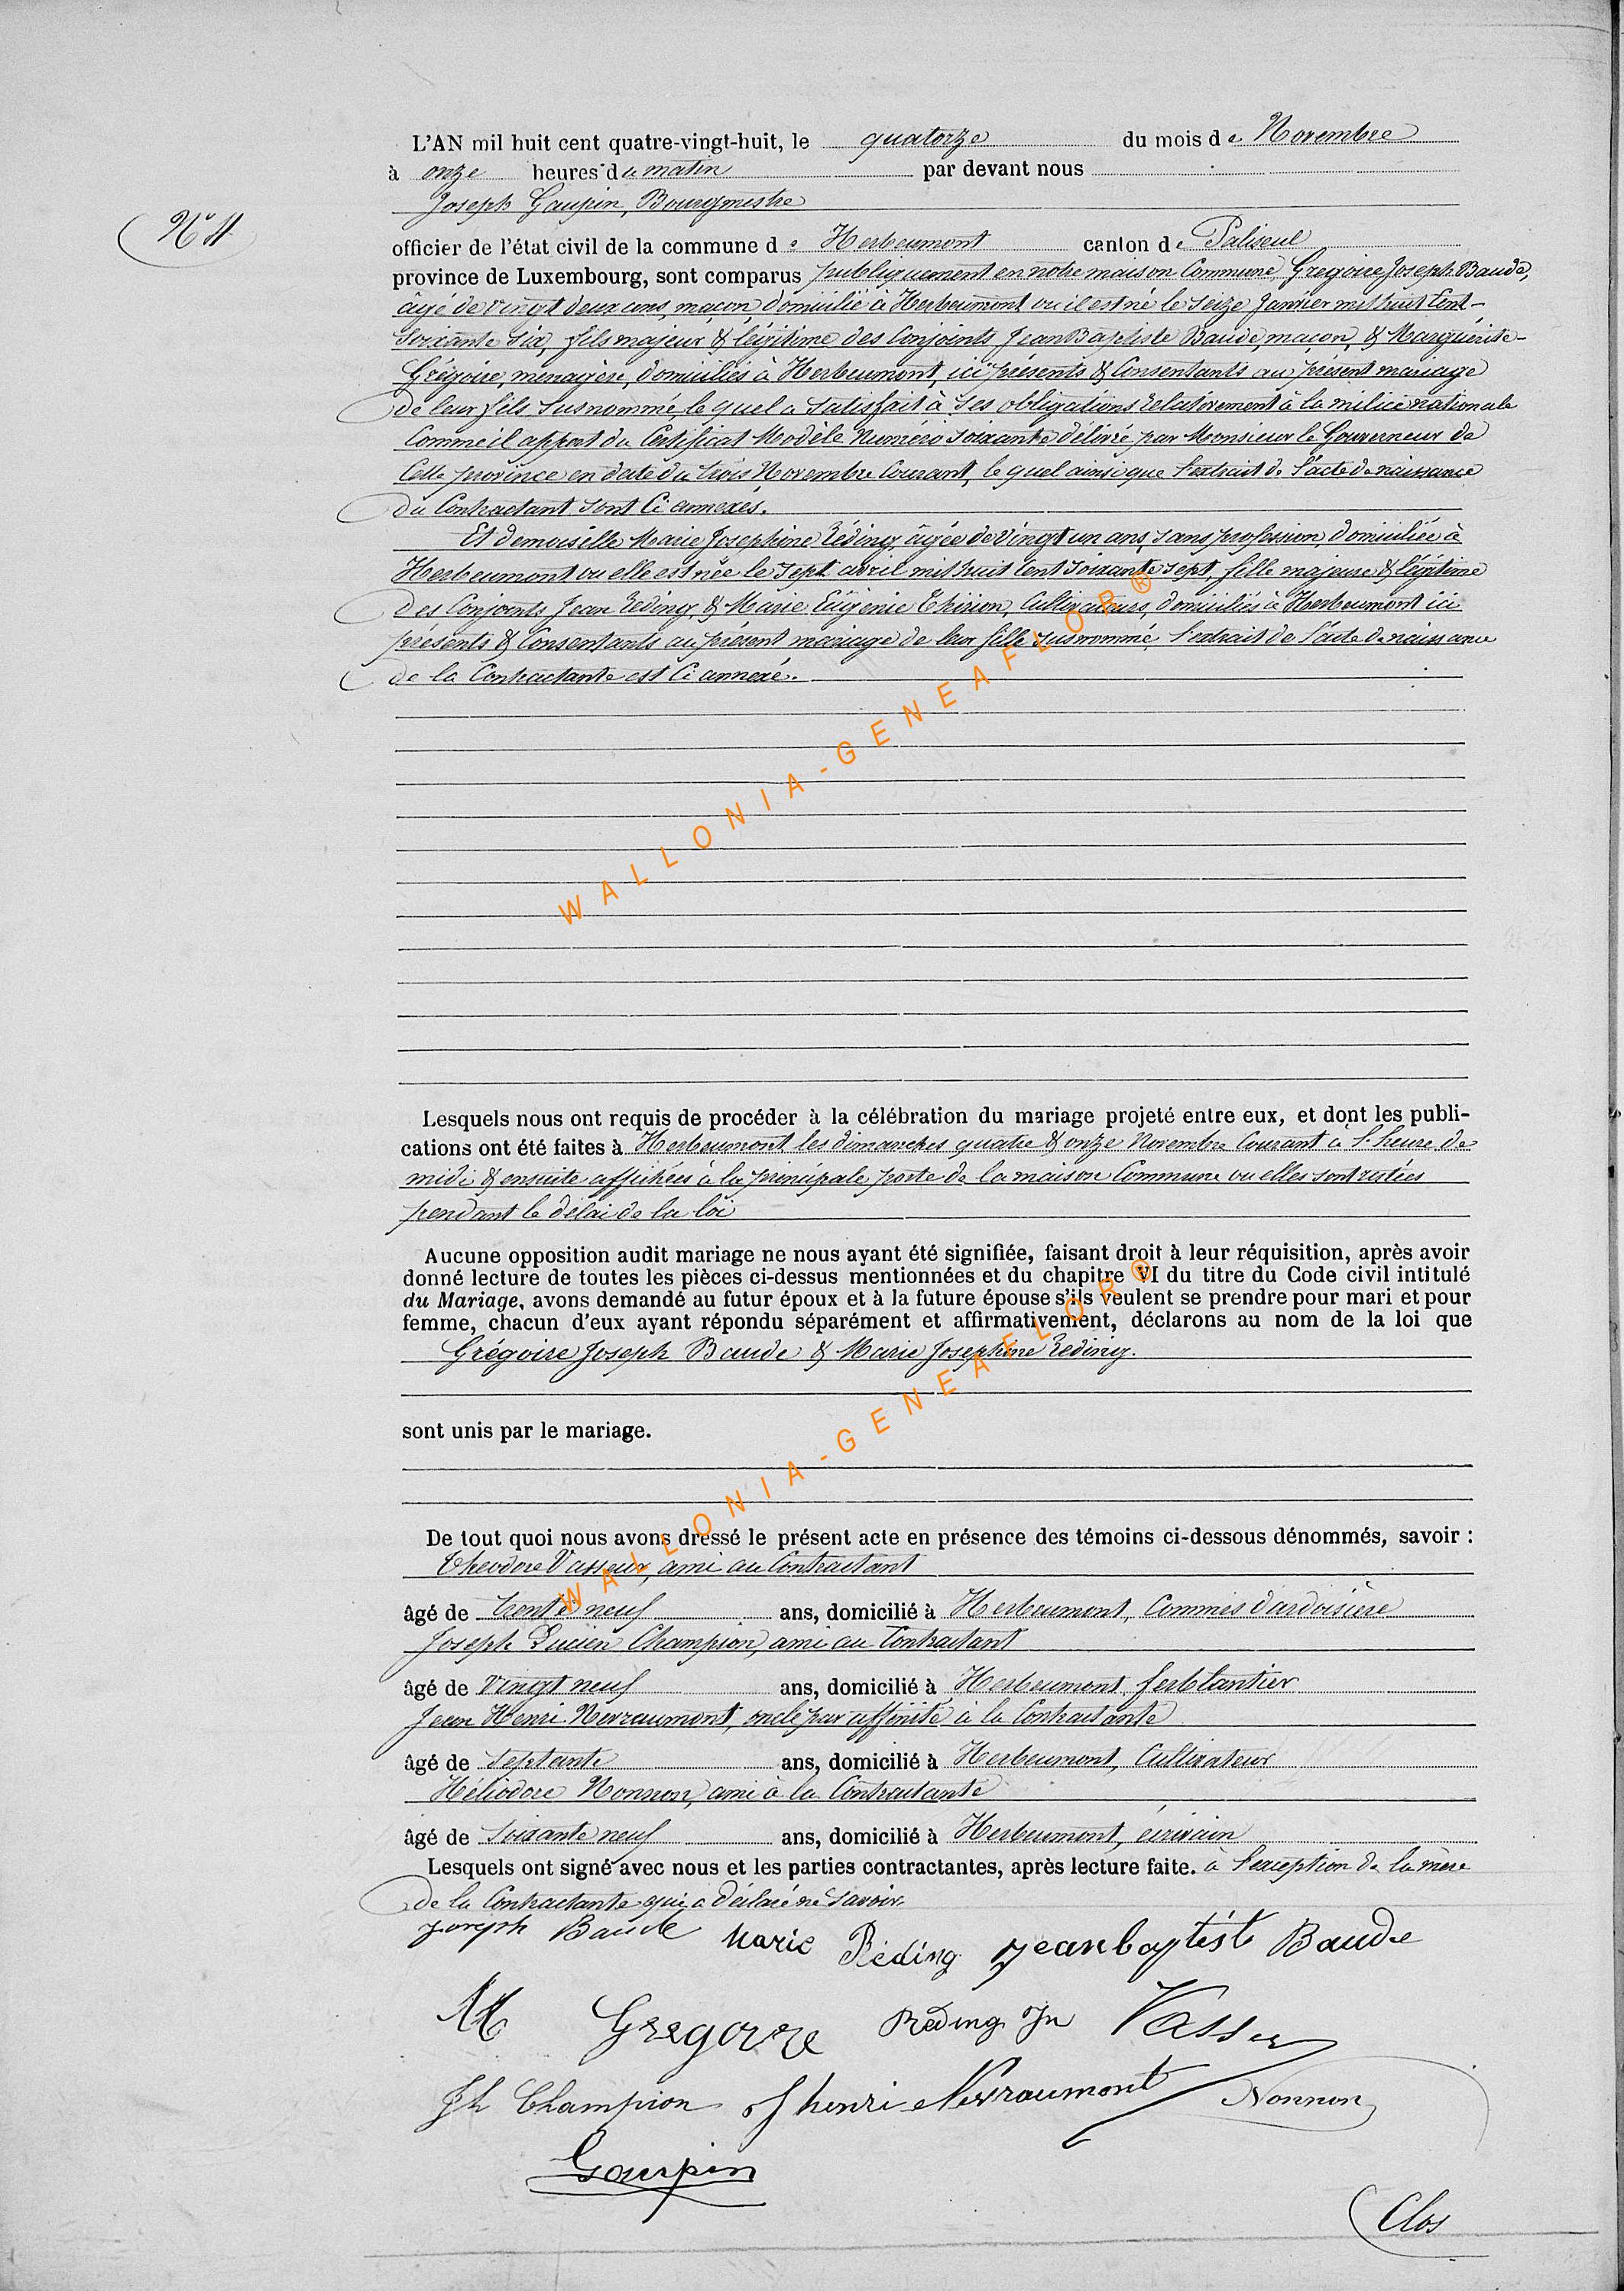 L'AN mil huit cent quatre-vingt-huit, le quatorze du mois de Novembre
à onze heures du matin par devant nous
Joseph Gaupin, Bourgmestre
officier de l'état civil de la commune de Herbeumont canton de Paliseul
province de Luxembourg, sont comparus publiquement en notre maison Commune, Grégoire Joseph Baude,
âgé de vingt deux ans, maçon, domicilié à Herbeumont ou il est né le seize Janvier mil huit Cent-
Soixante Six, fils majeur & légitime des Conjoints Jean Baptiste Baude, maçon, & Marguerite-
Grégoire, ménagère, domiciliés à Herbeumont, ici présents & Consentants au présent mariage
de leur fils susnommé, le quel a satisfait à ses obligations relativement à la milice nationale
Comme il appert du Certificat Modèle Numéro soixante délivré par Monsieur le Gouverneur de
Cette province en date du trois Novembre Courant, le quel ainsi que l'extrait de l'acte de naissance
du Contractant sont Ci annexés.
Et demoiselle Marie Josephine Réding, âgée de Vingt un ans, sans profession, domiciliée à
Herbeumont ou elle est née le sept avril mil huit Cent soixante sept, fille majeure & légitime
des Conjoints Jean Reding, & Marie Eugènie Thirion, Cultivateurs, domiciliés à Herbeumont ici
présents & Consentants au présent mariage de leur fille susnommé, l'extrait de l'acte de naissance
de la Contractante est Ci annexé.
Lesquels nous ont requis de procéder à la célébration du mariage projeté entre eux, et dont les publi-
cations ont été faites à Herbeumont les dimanches quatre & onze Novembre Courant à l'heure de
midi & ensuite affichées à la principale porte de la maison Commune ou elles sont restées
pendant le délai de la loi
Aucune opposition audit mariage ne nous ayant été signifiée, faisant droit à leur réquisition, après avoir
donné lecture de toutes les pièces ci-dessus mentionnées et du chapitre VI du titre du Code civil intitulé
du Mariage, avons demandé au futur époux et à la future épouse s'ils veulent se prendre pour mari et pour
femme, chacun d'eux ayant répondu séparément et affirmativement, déclarons au nom de la loi que
Grégoire Joseph Baude & Marie Josephine Reding.
sont unis par le mariage.
De tout quoi nous avons dressé le présent acte en présence des témoins ci-dessous dénommés, savoir :
Théodore Vasseur, ami au Contractant
âgé de trente neuf ans, domicilié à Herbeumont, Commis d'ardoisière
Joseph Lucien Champion, ami au Contractant
âgé de Vingt neuf ans, domicilié à Herbeumont, ferblantier
Jean Henri Nevraumont, oncle par affinité à la Contractante
âgé de septante ans, domicilié à Herbeumont, Cultivateur
Héliodore Nonnon, ami à la Contractante
âgé de soixante neuf ans, domicilié à Herbeumont, écrivain
Lesquels ont signé avec nous et les parties contractantes, après lecture faite. à l'exception de la mère
de la Contractante qui a déclaré ne savoir.
joseph Baude Marie Réding jean baptist Baude
M Gregoire Reding Jn Vasseur
Jh Champion J henri Nevraumont Nonnon
Gaupin
Clos
WALLONIA-GENEAFLOR®
WALLONIA-GENEAFLOR®